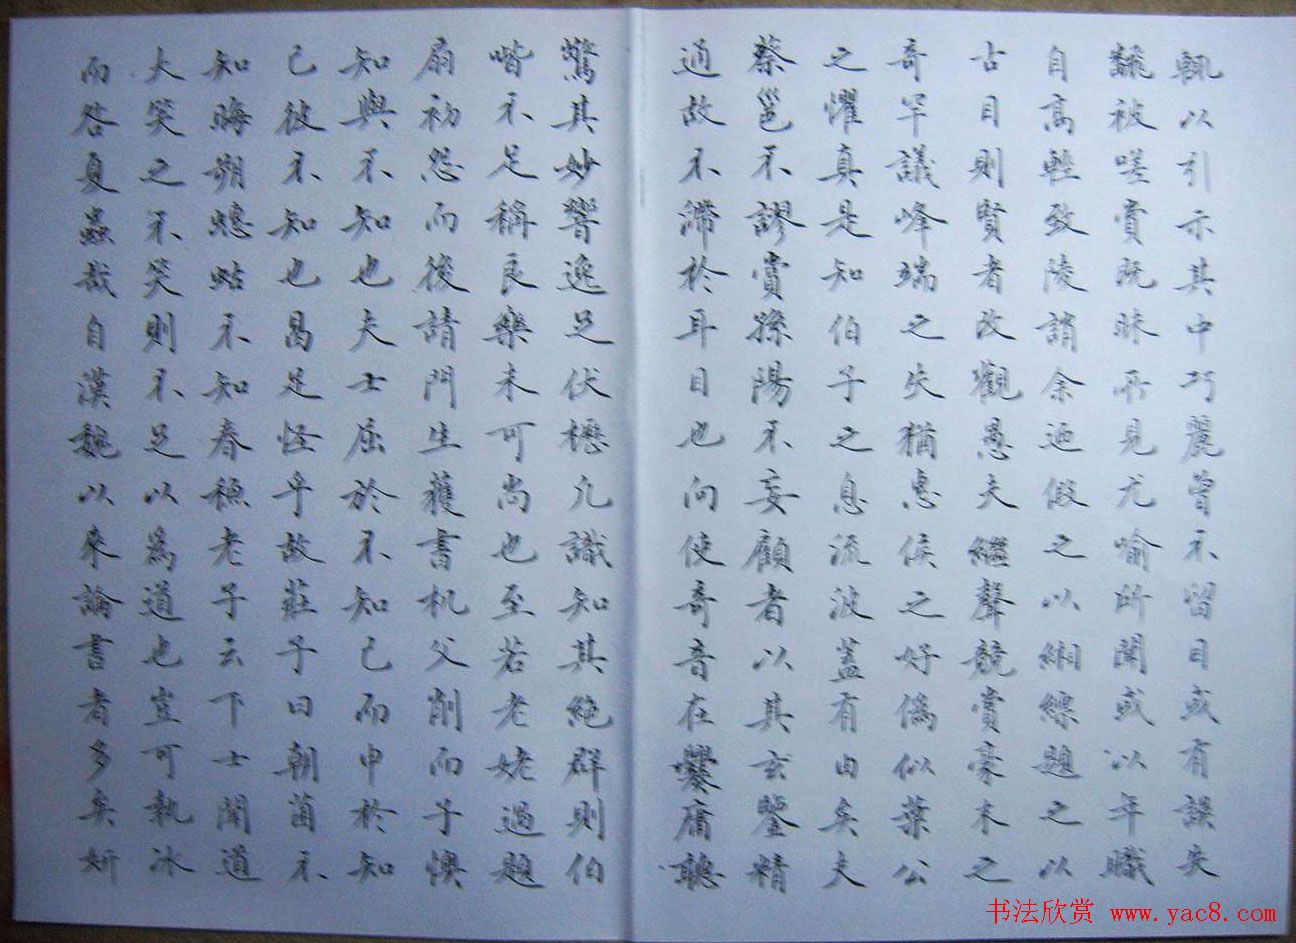 輒以引示其中巧麗曾不留目或有誤失
飜被嗟賞既昧所見尤喻所聞或以年職
自高輕致陵誚余迺假之以緗縹題之以
古目則賢者改觀愚夫繼聲競賞豪末之
奇罕議峰端之失猶惠侯之好偽似葉公
之懼真是知伯子之息流波蓋有由矣夫
蔡邕不謬賞孫陽不妄顧者以其玄鑒精
通故不滯於耳目也向使奇音在爨庸聽
驚其妙響逸足伏櫪凡識知其絕群則伯
喈不足稱良樂未可尚也至若老姥遇題
扇初怨而後請門生獲書机父削而子懊
知與不知也夫士屈於不知己而申於知
己彼不知也曷足怪乎故莊子曰朝菌不
知晦朔蟪蛄不知春秋老子云下士聞道
大笑之不笑則不足以為道也豈可執冰
而咎夏蟲哉自漢魏以來論書者多矣妍
书法欣赏 www.yac8.com